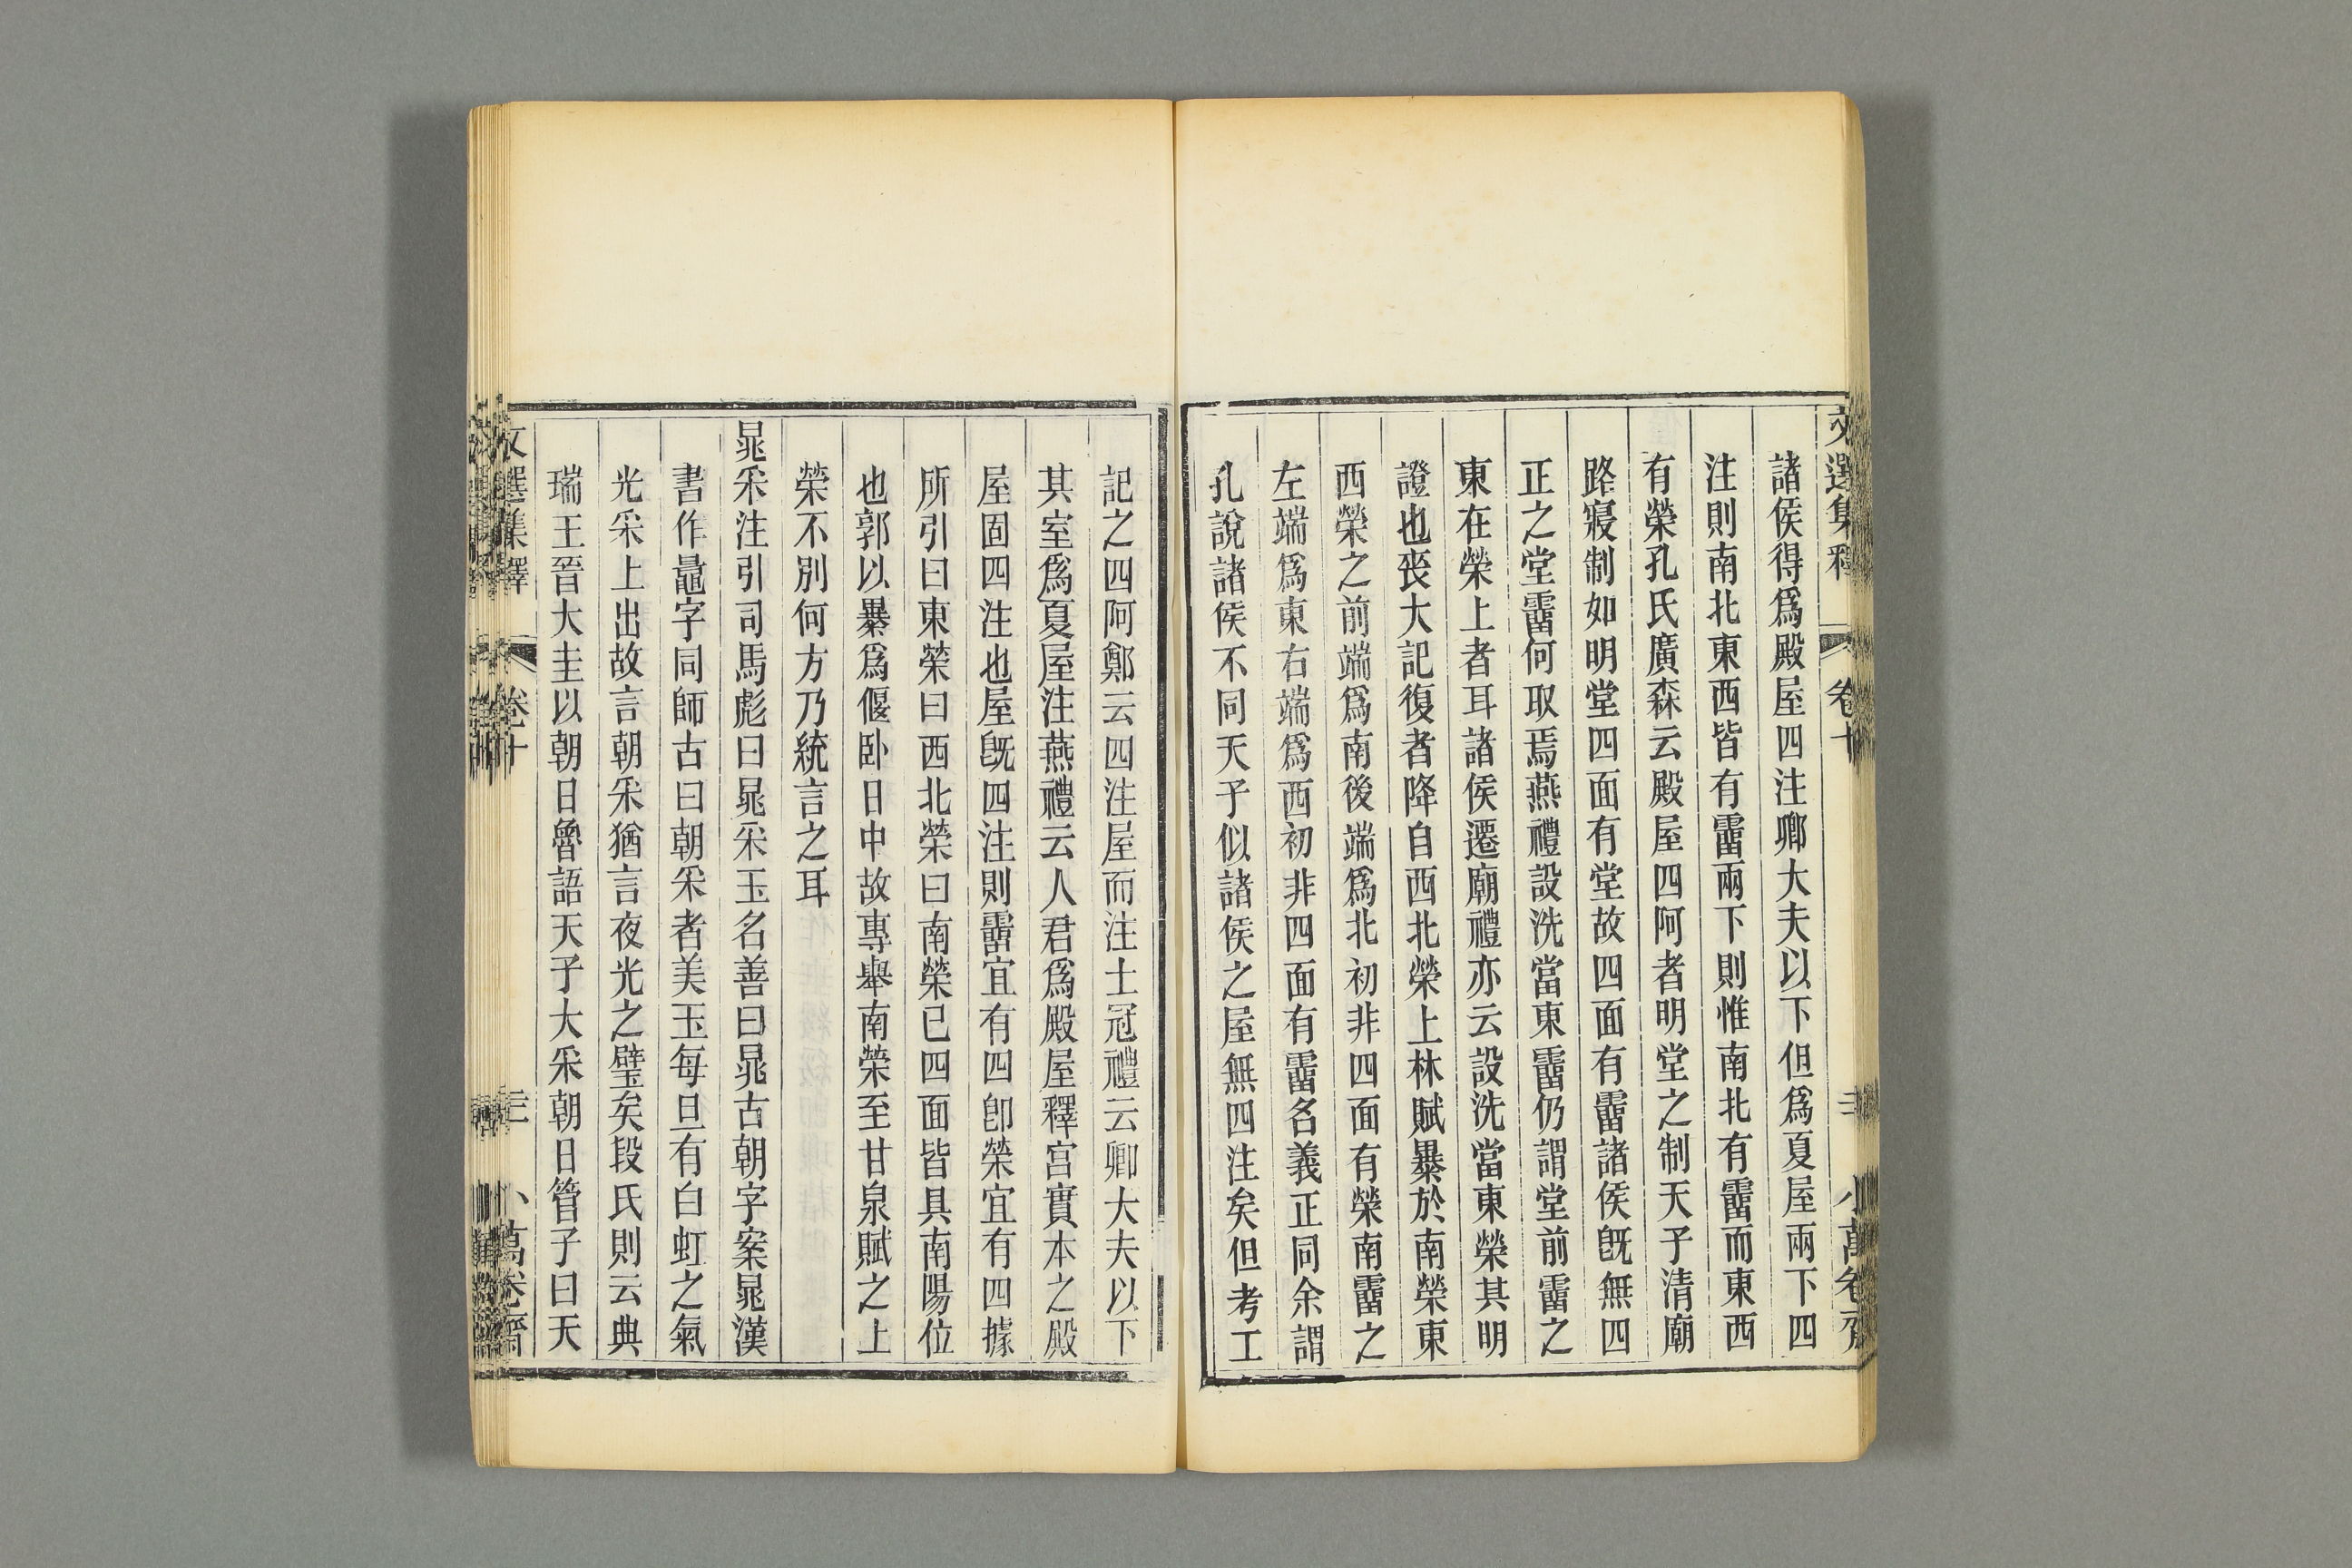 文選集釋 卷十 小萬卷齋
諸侯得爲殿屋四注卿大夫以下但爲夏屋兩下四
注則南北東西皆有霤兩下則惟南北有霤而東西
有榮孔氏廣森云殿屋四阿者明堂之制天子清廟
路寢制如明堂四面有堂故四面有霤諸侯既無四
正之堂霤何取焉燕禮設洗當東霤仍謂堂前霤之
東在榮上者耳諸侯遷廟禮亦云設洗當東榮其明
證也喪大記復者降自西北榮上林賦暴於南榮東
西榮之前端爲南後端爲北初非四面有榮南霤之
左端爲東右端爲西初非四面有霤名義正同余謂
孔說諸侯不同天子似諸侯之屋無四注矣但考工
記之四阿鄭云四注屋而注士冠禮云卿大夫以下
其室爲夏屋注燕禮云人君爲殿屋釋宮實本之殿
屋固四注也屋旣四注則霤宜有四卽榮宜有四據
所引曰東榮曰西北榮曰南榮已四面皆具南陽位
也郭以㬥爲偃卧日中故專舉南榮至甘泉賦之上
榮不別何方乃統言之耳
鼂采注引司馬彪曰鼂采玉名善曰鼂古朝字案鼂漢
書作鼂字同師古曰朝采者美玉每旦有白虹之氣
光采上出故言朝采猶言夜光之璧矣段氏則云典
瑞王晉大圭以朝日魯語天子大采朝日管子曰天
文選集釋 卷十 三 小萬卷齋